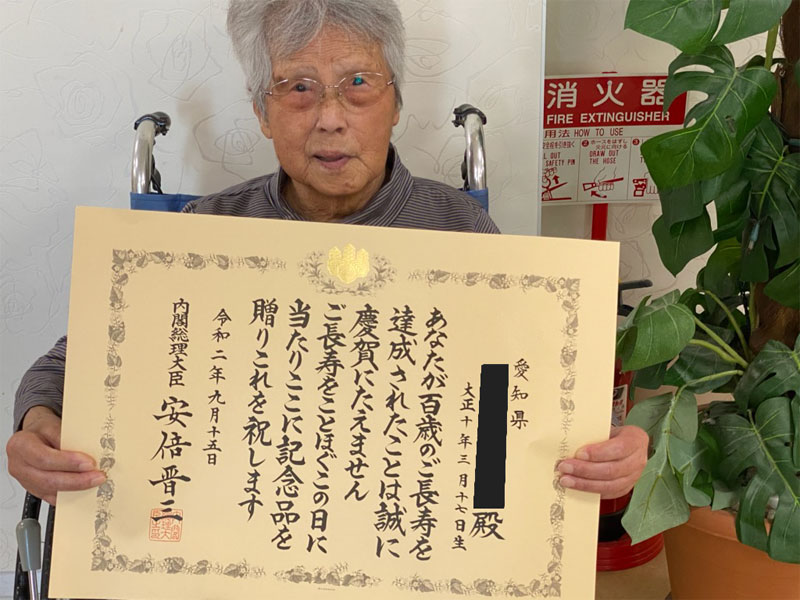 愛知県
殿
大正十年三月十七日生
あなたが百歳のご長寿を
達成されたことは誠に
慶賀にたえません
ご長寿をことほぐこの日に
当たりここに記念品を
贈りこれを祝します
令和二年九月十五日
内閣総理大臣 安倍晋三
消火器
FIRE EXTINGUISHER
用法 HOW TO USE
② ホースをはずし
火元に向ける
③
OUT
SAFETY PIN
DRAW OUT
THE HOSE